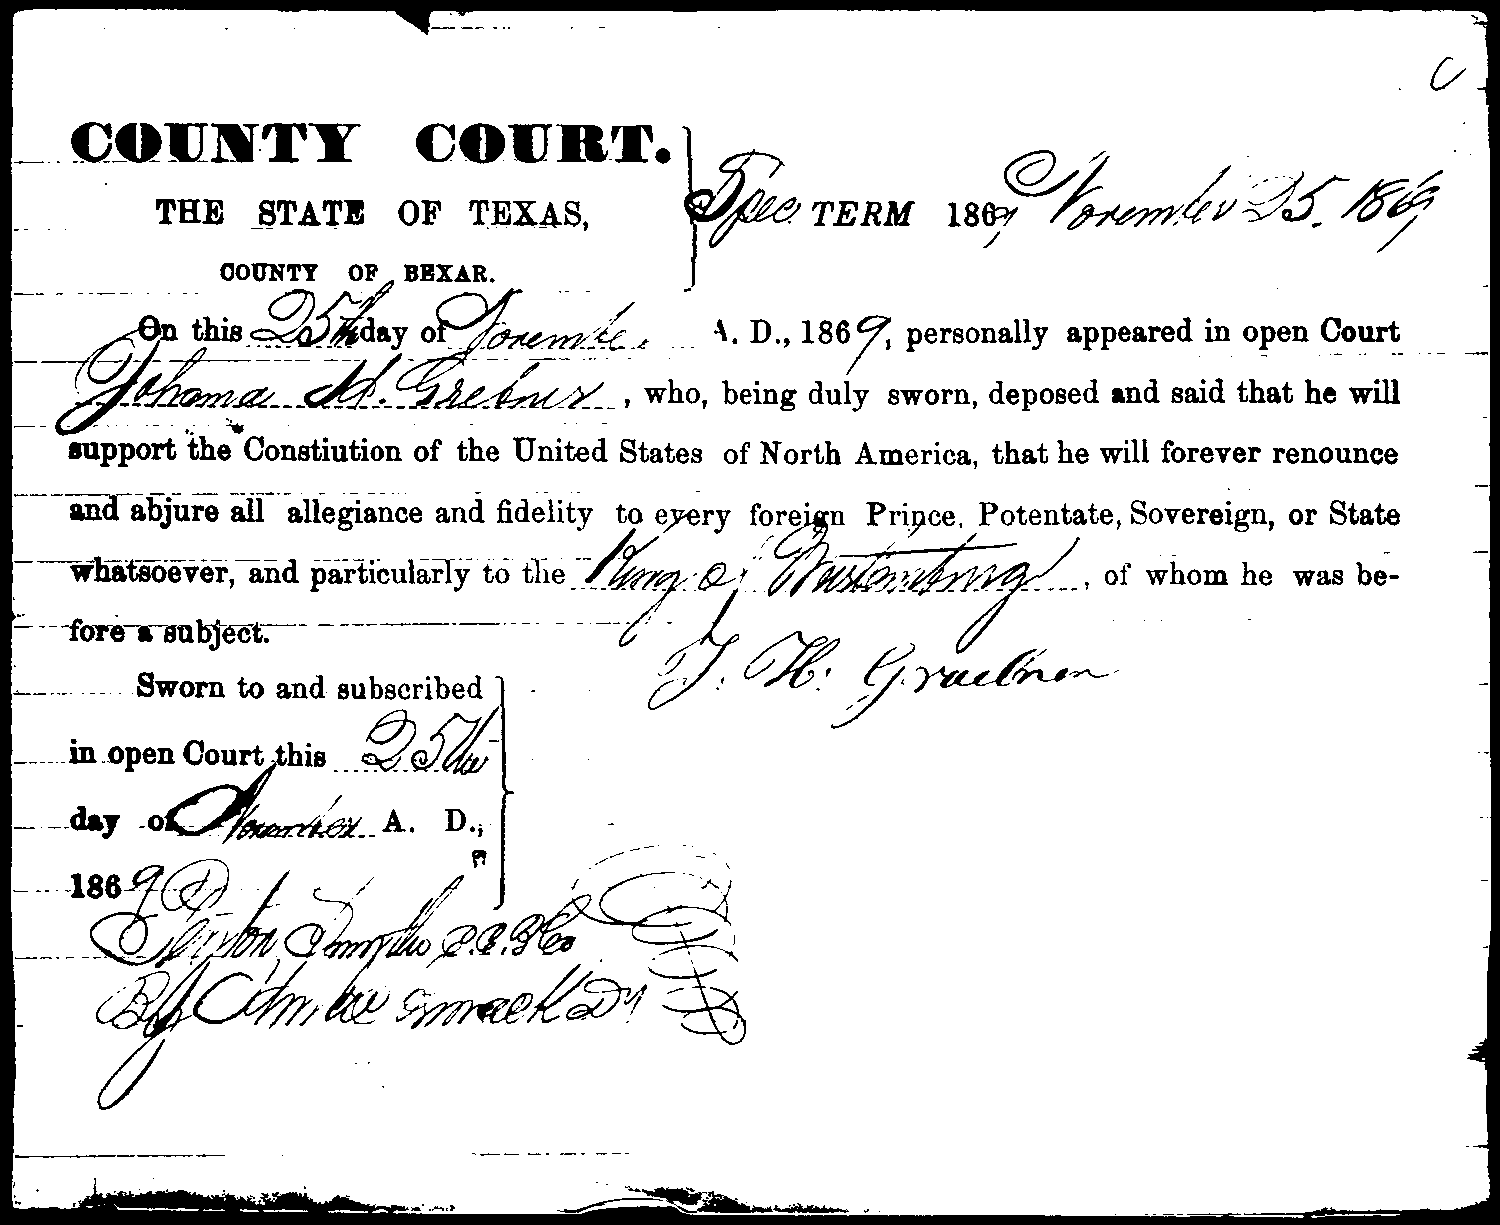 C
COUNTY COURT.
THE STATE OF TEXAS,
COUNTY OF BEXAR.
Spec TERM 1869, November 25. 1869
On this 25th day of November A. D., 1869, personally appeared in open Court
Johana H. Grebner, who, being duly sworn, deposed and said that he will
support the Constiution of the United States of North America, that he will forever renounce
and abjure all allegiance and fidelity to every foreign Prince, Potentate, Sovereign, or State
whatsoever, and particularly to the King of Wurtemburg, of whom he was be-
fore a subject.
J. H. Graebner
Sworn to and subscribed
in open Court this 25th
day of November A. D.,
1869
C.C.B.Co
By